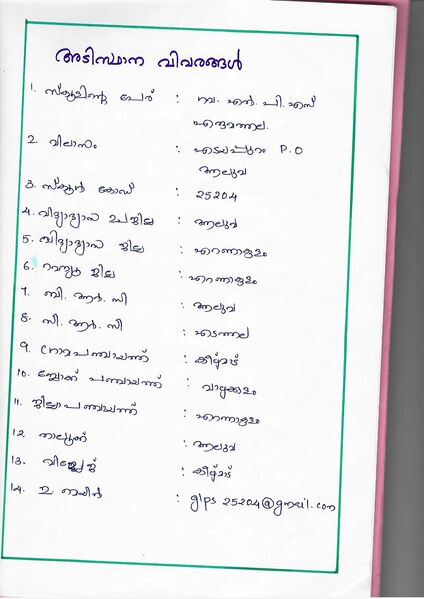 അടിസ്ഥാന വിവരങ്ങൾ
1. സ്കൂളിന്റെ പേര് : ഗവ. എൽ. പി. എസ്
എരുമത്തല
2. വിലാസം : എടയപ്പുറം P.O
ആലുവ
3. സ്കൂൾ കോഡ് : 25204
4. വിദ്യാഭ്യാസ ഉപജില്ല : ആലുവ
5. വിദ്യാഭ്യാസ ജില്ല : എറണാകുളം
6. റവന്യൂ ജില്ല : എറണാകുളം
7. ബി. ആർ. സി : ആലുവ
8. സി. ആർ. സി : എടത്തല
9. ഗ്രാമപഞ്ചായത്ത് : കീഴ്മാട്
10. ബ്ലോക്ക് പഞ്ചായത്ത് : വാഴക്കുളം
11. ജില്ലാപഞ്ചായത്ത് : എറണാകുളം
12. താലൂക്ക് : ആലുവ
13. വില്ലേജ് : കീഴ്മാട്
14. ഇ. മെയിൽ : glps 25204@gmail.com